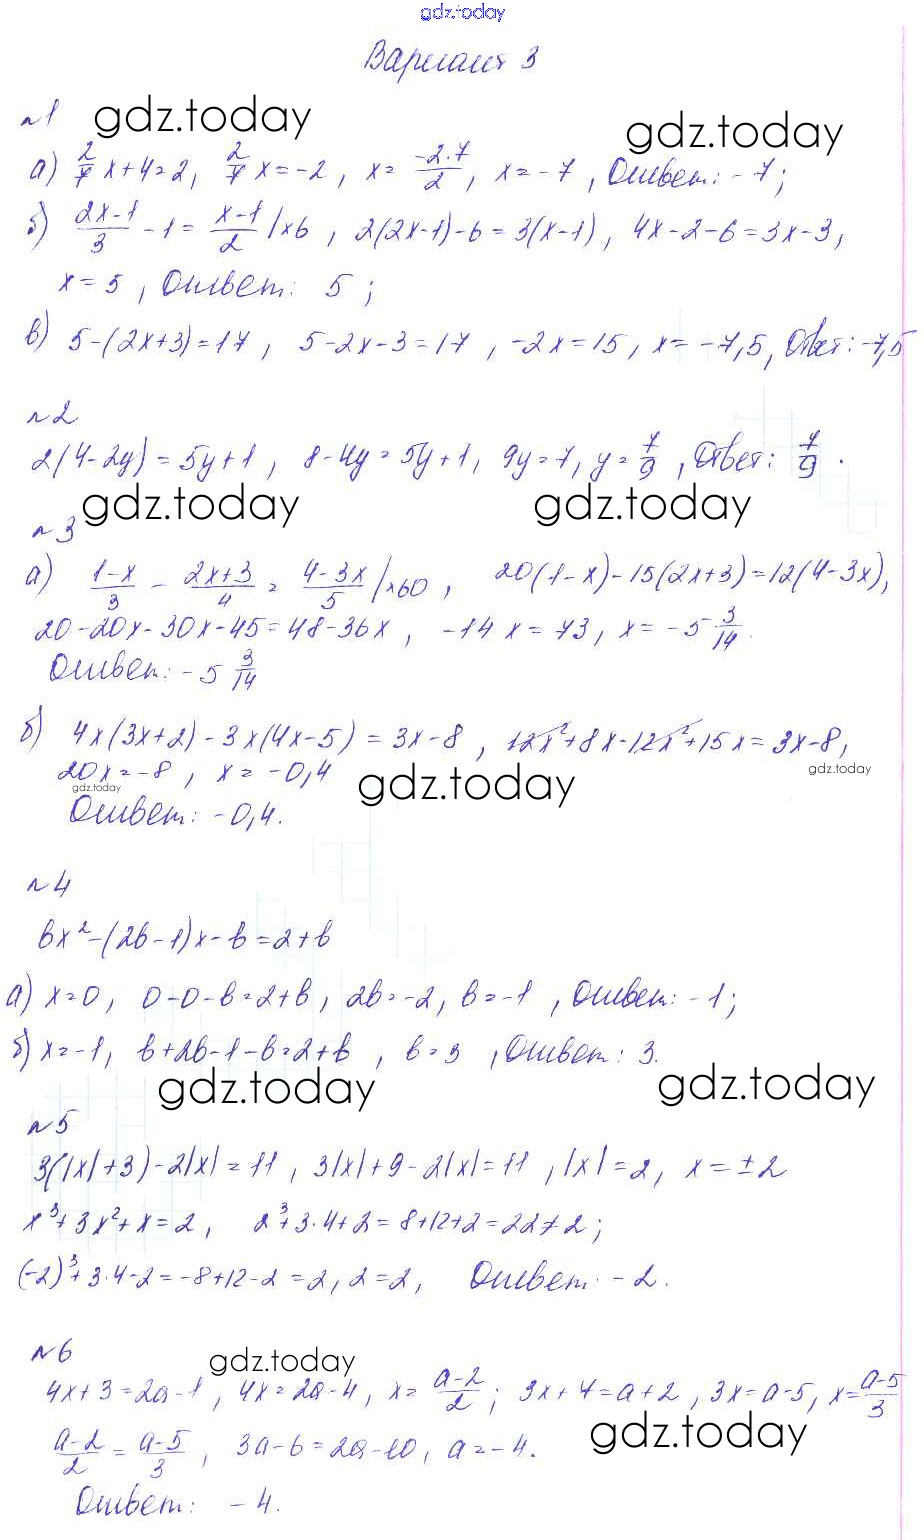 gdz.today
Вариант 3
№1 gdz.today gdz.today
а) 2/7 x + 4 = 2, 2/7 x = -2, x = (-2·7)/2, x = -7, Ответ: -7;
б) (2x-1)/3 - 1 = (x-1)/2 |×6, 2(2x-1)-6=3(x-1), 4x-2-6=3x-3,
x = 5, Ответ: 5;
в) 5-(2x+3)=17, 5-2x-3=17, -2x=15, x=-7,5, Ответ: -7,5
№2
2(4-2y)=5y+1, 8-4y=5y+1, 9y=7, y=7/9, Ответ: 7/9.
gdz.today gdz.today
№3
а) (1-x)/3 - (2x+3)/4 = (4-3x)/5 |×60, 20(1-x)-15(2x+3)=12(4-3x),
20-20x-30x-45=48-36x, -14x=73, x=-5 3/14.
Ответ: -5 3/14
б) 4x(3x+2)-3x(4x-5)=3x-8, 12x²+8x-12x²+15x=3x-8,
gdz.today
20x=-8, x=-0,4
gdz.today gdz.today
Ответ: -0,4.
№4
bx²-(2b-1)x-b=2+b
а) x=0, 0-0-b=2+b, 2b=-2, b=-1, Ответ: -1;
б) x=-1, b+2b-1-b=2+b, b=3, Ответ: 3.
gdz.today gdz.today
№5
3(|x|+3)-2|x|=11, 3|x|+9-2|x|=11, |x|=2, x=±2
x³+3x²+x=2, 2³+3·4+2=8+12+2=22≠2;
(-2)³+3·4-2=-8+12-2=2, 2=2, Ответ: -2.
№6 gdz.today
4x+3=2a-1, 4x=2a-4, x=(a-2)/2; 3x+7=a+2, 3x=a-5, x=(a-5)/3
gdz.today
(a-2)/2=(a-5)/3, 3a-6=2a-10, a=-4.
Ответ: -4.